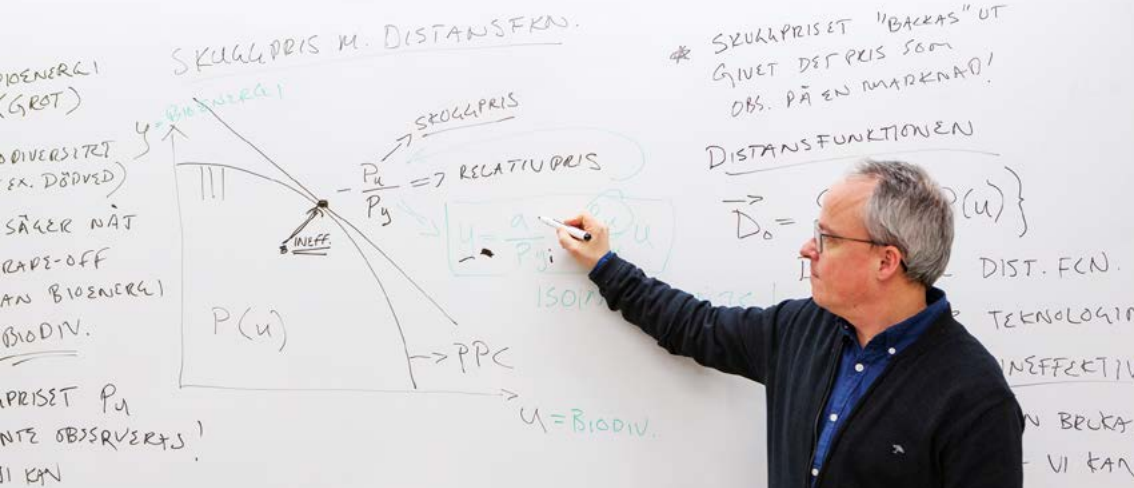 SKUGGPRIS M. DISTANSFKN.
BIOENERGI
(GROT)
BIODIVERSITET
EX. DÖDVED)
SÄGER NÅT
TRADE-OFF
AN BIOENERGI
BIODIV.
PRISET Pu
NTE OBSERVERAS!
VI KAN
y = BIOENERGI
SKUGGPRIS
- Pu/Py => RELATIVPRIS
INEFF.
P(u)
-> PPC
u = BIODIV.
* SKUGGPRISET "BACKAS" UT
GIVET DET PRIS SOM
OBS. PÅ EN MARKNAD!
DISTANSFUNKTIONEN
D₀ =
P(u)}
DIST. FCN.
TEKNOLOGIN
INEFFEKTIV
N BRUKA
- VI KAN